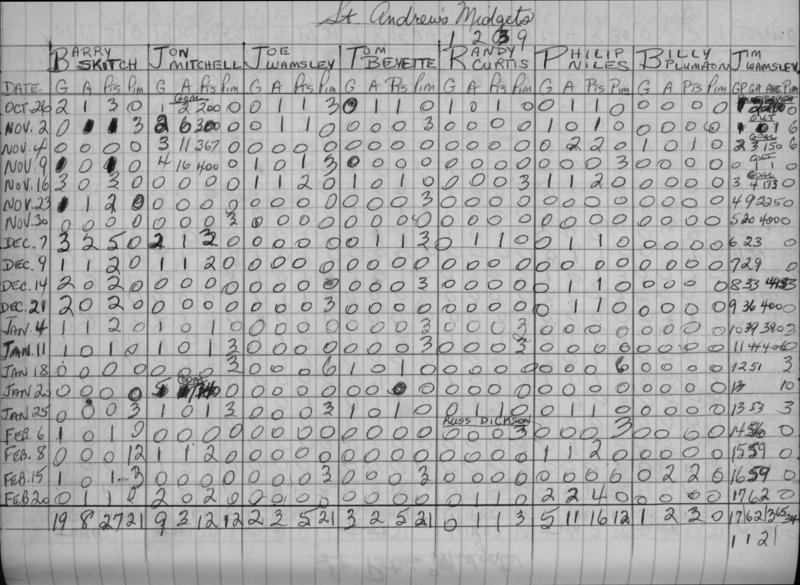 St. Andrew's Midgets
1 2 3 9
BARRY SKITCH JON MITCHELL JOE WAMSLEY TOM BEYETTE RANDY CURTIS PHILIP NILES BILLY PLUMTON JIM WAMSLEY
DATE G A Pts Pim G A Pts Pim G A Pts Pim G A Pts Pim G A Pts Pim G A Pts Pim G A Pts Pim GP GA AVE Pim
OCT. 26 2 1 3 0 1 2 200 0 0 1 1 3 0 1 1 0 1 0 1 0 0 1 1 0 0 0 0 0
NOV. 2 0 1 1 3 2 6 300 0 0 1 1 0 0 0 0 3 0 0 0 0 1 0 1 0 0 0 0 0
NOV. 4 0 0 0 0 3 11 367 0 0 0 0 0 0 0 0 0 0 0 0 0 2 2 0 1 0 1 0 2 3 150 6
NOV. 9 0 0 4 16 400 0 1 0 1 3 0 0 0 0 0 0 0 0 0 0 0 3 0 0 0 0 0 1 1 0
NOV. 16 3 0 3 0 0 0 0 0 0 1 1 2 0 1 0 1 0 0 0 0 3 1 1 2 0 0 0 0 0 3 4 133 0
NOV. 23 1 1 2 0 0 0 0 0 0 0 0 0 0 0 0 3 0 0 0 0 0 0 0 0 0 0 0 0 4 9 225 0
NOV. 30 0 0 0 0 0 0 0 3 0 0 0 0 0 0 0 0 0 0 0 0 0 0 0 0 0 0 0 0 5 20 400 0
DEC. 7 3 2 5 0 2 1 3 0 0 0 0 0 0 1 1 3 0 1 1 0 0 1 1 0 0 0 0 0 6 23 0
DEC. 9 1 1 2 0 1 1 2 0 0 0 0 0 0 0 0 0 0 0 0 0 0 0 0 0 0 0 0 0 7 29 0
DEC. 14 2 0 2 0 0 0 0 0 0 0 0 0 0 0 0 3 0 0 0 0 0 1 1 0 0 0 0 0 8 33 3
DEC. 21 2 0 2 0 0 0 0 0 0 0 0 3 0 0 0 0 0 0 0 0 0 1 1 0 0 0 0 0 9 36 400 0
JAN. 4 1 1 2 0 1 0 1 0 0 0 0 0 0 0 0 3 0 0 0 3 0 0 0 0 0 0 0 0 10 39 390 3
JAN. 11 1 0 1 0 1 0 1 3 0 0 0 0 0 0 0 3 0 0 0 3 0 0 0 0 0 0 0 0 11 44 406 0
JAN 18 0 0 0 0 0 0 0 3 0 0 0 6 1 0 1 0 0 0 0 0 0 0 0 6 0 0 0 0 12 51 3
JAN 20 0 0 0 0 0 0 0 0 0 0 0 0 0 0 0 0 0 0 0 0 0 0 0 0 0 10
JAN 25 0 0 0 3 1 0 1 3 0 0 0 3 1 0 1 0 0 1 1 0 0 1 1 0 0 0 0 0 13 53 3
RUSS DICKSON
FEB. 6 1 0 1 0 0 0 0 0 0 0 0 0 0 0 0 0 0 0 0 3 0 0 0 3 0 0 0 0 14 56 0
FEB. 8 0 0 0 12 1 1 2 0 0 0 0 0 0 0 0 0 0 0 0 0 1 1 2 0 0 0 0 0 15 59 0
FEB. 15 1 0 1 3 0 0 0 0 0 0 0 3 0 0 0 3 0 0 0 0 0 0 0 0 0 2 2 0 16 59 0
FEB 20 0 1 1 0 2 0 2 0 0 0 0 0 0 0 0 0 0 1 1 0 2 2 4 0 0 0 0 0 17 62 0
19 8 27 21 9 3 12 12 2 3 5 21 3 2 5 21 0 1 1 3 5 11 16 12 1 2 3 0 17 62 365 34
1 1 2 1